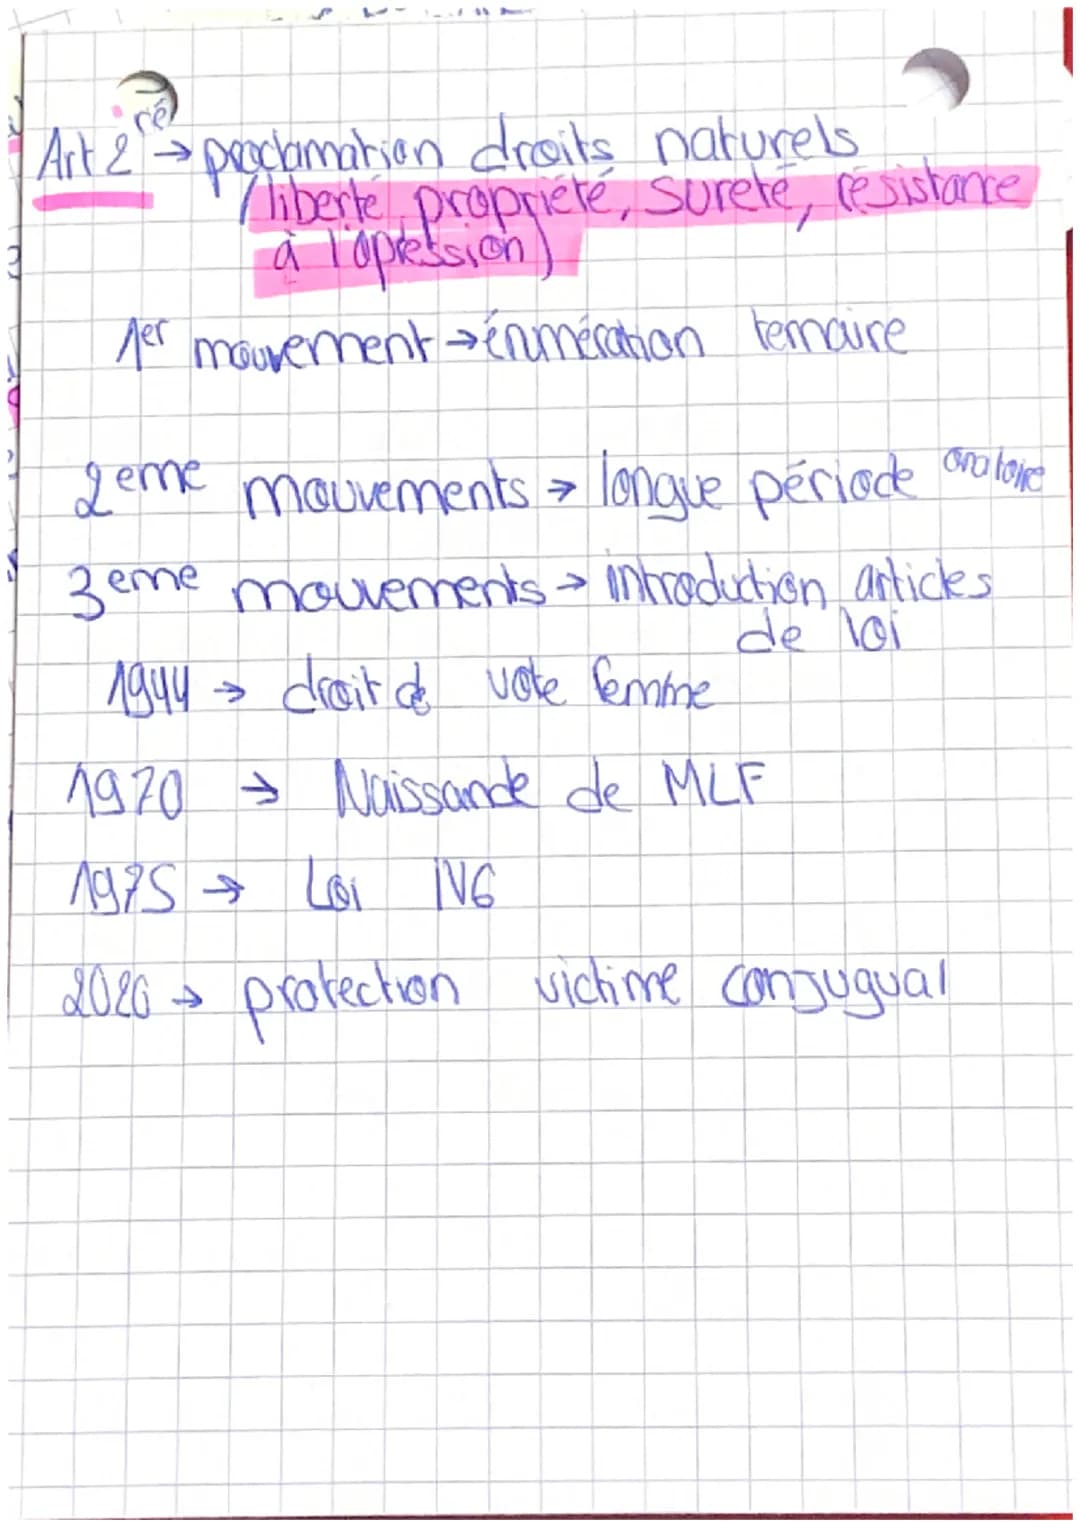 ré
Art 2 → proclamation droits naturels
(liberté, propriété, sureté, résistance
à l'opression)
1er mouvement → énumération ternaire
2eme mouvements → longue période oratoire
3eme mouvements → introduction articles
de loi
1944 → droit de vote femme
1970 → Naissande de MLF
1975 → Loi IVG
2020 → protection victime conjugual